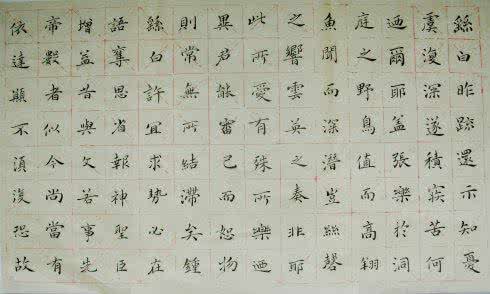 繇白昨疏還示知憂
虞復深遂積疾苦何
迺爾耶蓋張樂於洞
庭之野鳥值而高翔
魚聞而深潛豈絲磬
之響雲英之奏非耶
此所愛有殊所樂迺
異君能審己而恕物
則常無所結滯矣鍾
繇白許宜求勢必在
語奪思省報神聖臣
增益昔與文若事先
帝數者似今尚當有
依違顯不須復恐故